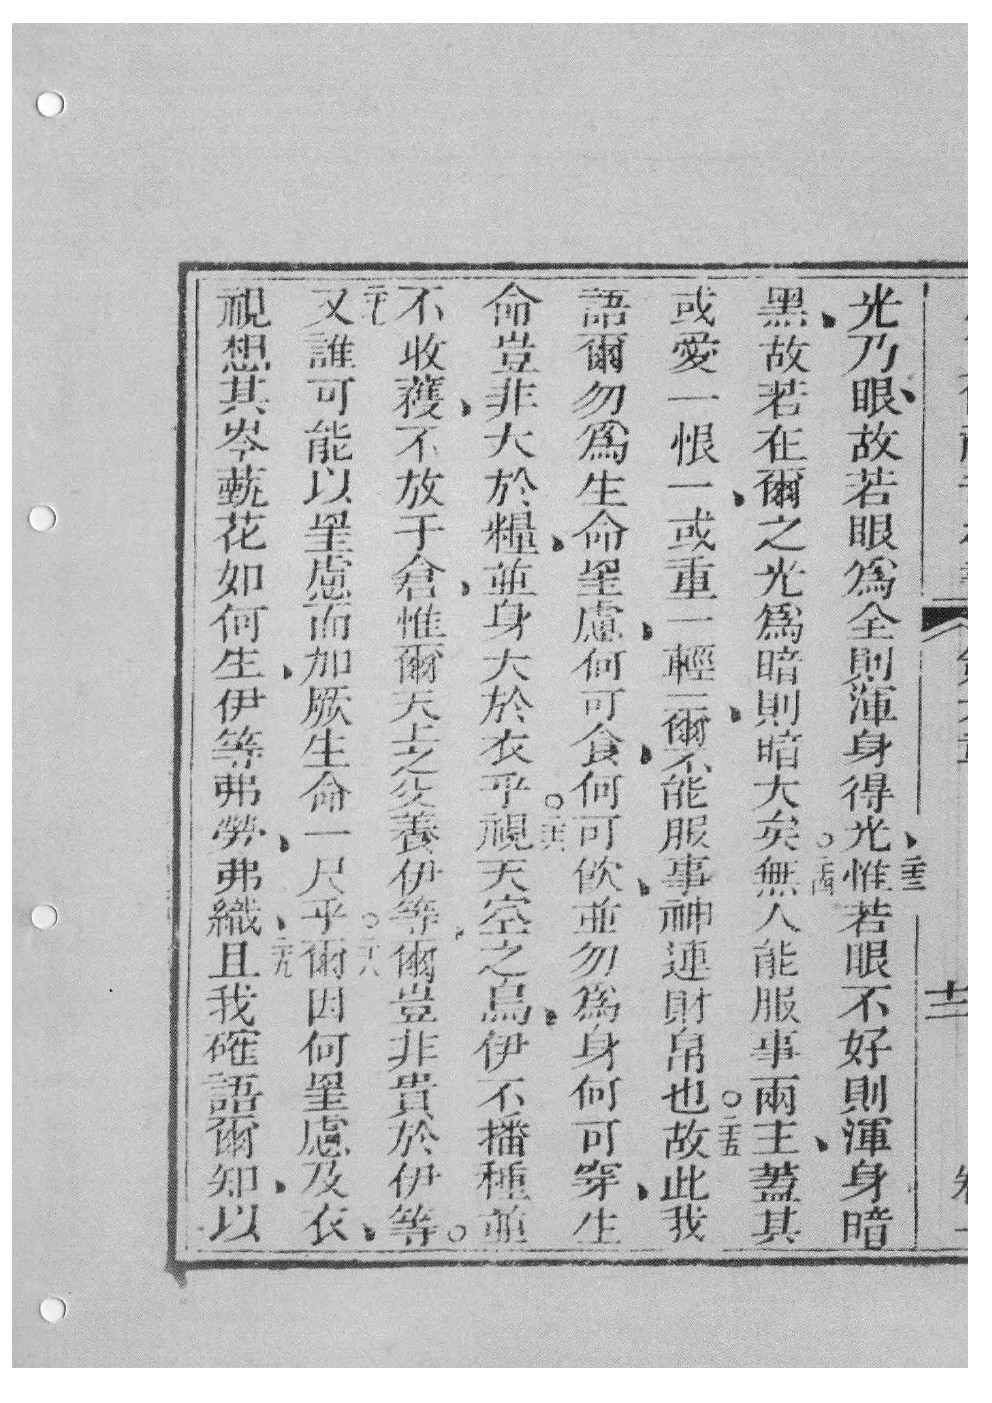 光乃眼、故若眼爲全則渾身得光、惟若眼不好則渾身暗
二十三
黑、故若在爾之光爲暗則暗大矣○無人能服事兩主、蓋其
二十四
或愛一恨一、或重一輕一、爾不能服事神連財帛也○故此我
二十五
語爾勿爲生命罣慮、何可食、何可飲、並勿爲身何可穿、生
命豈非大於糧、並身大於衣乎○視天空之鳥、伊不播種並
二十六
不收穫、不放于倉、惟爾天上之父養伊等、爾豈非貴於伊等○
二十七
又誰可能以罣慮而加厥生命一尺乎○爾因何罣慮及衣、
二十八
視想其岑蓺花如何生、伊等弗勞、弗織、且我確語爾知、以
二十九
十二